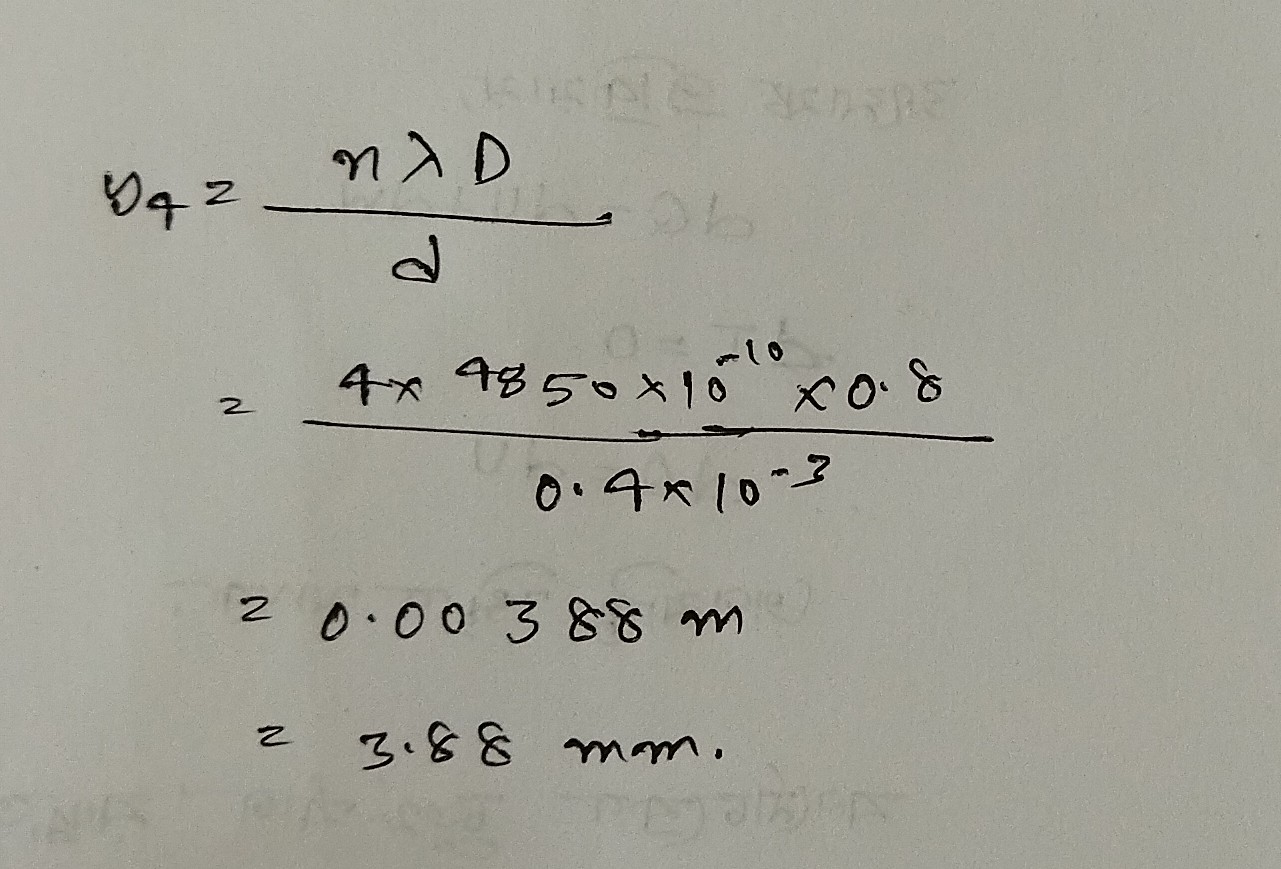 y₄ = nλD / d
= 4 × 4850 × 10⁻¹⁰ × 0.8 / 0.4 × 10⁻³
= 0.00388 m
= 3.88 mm.